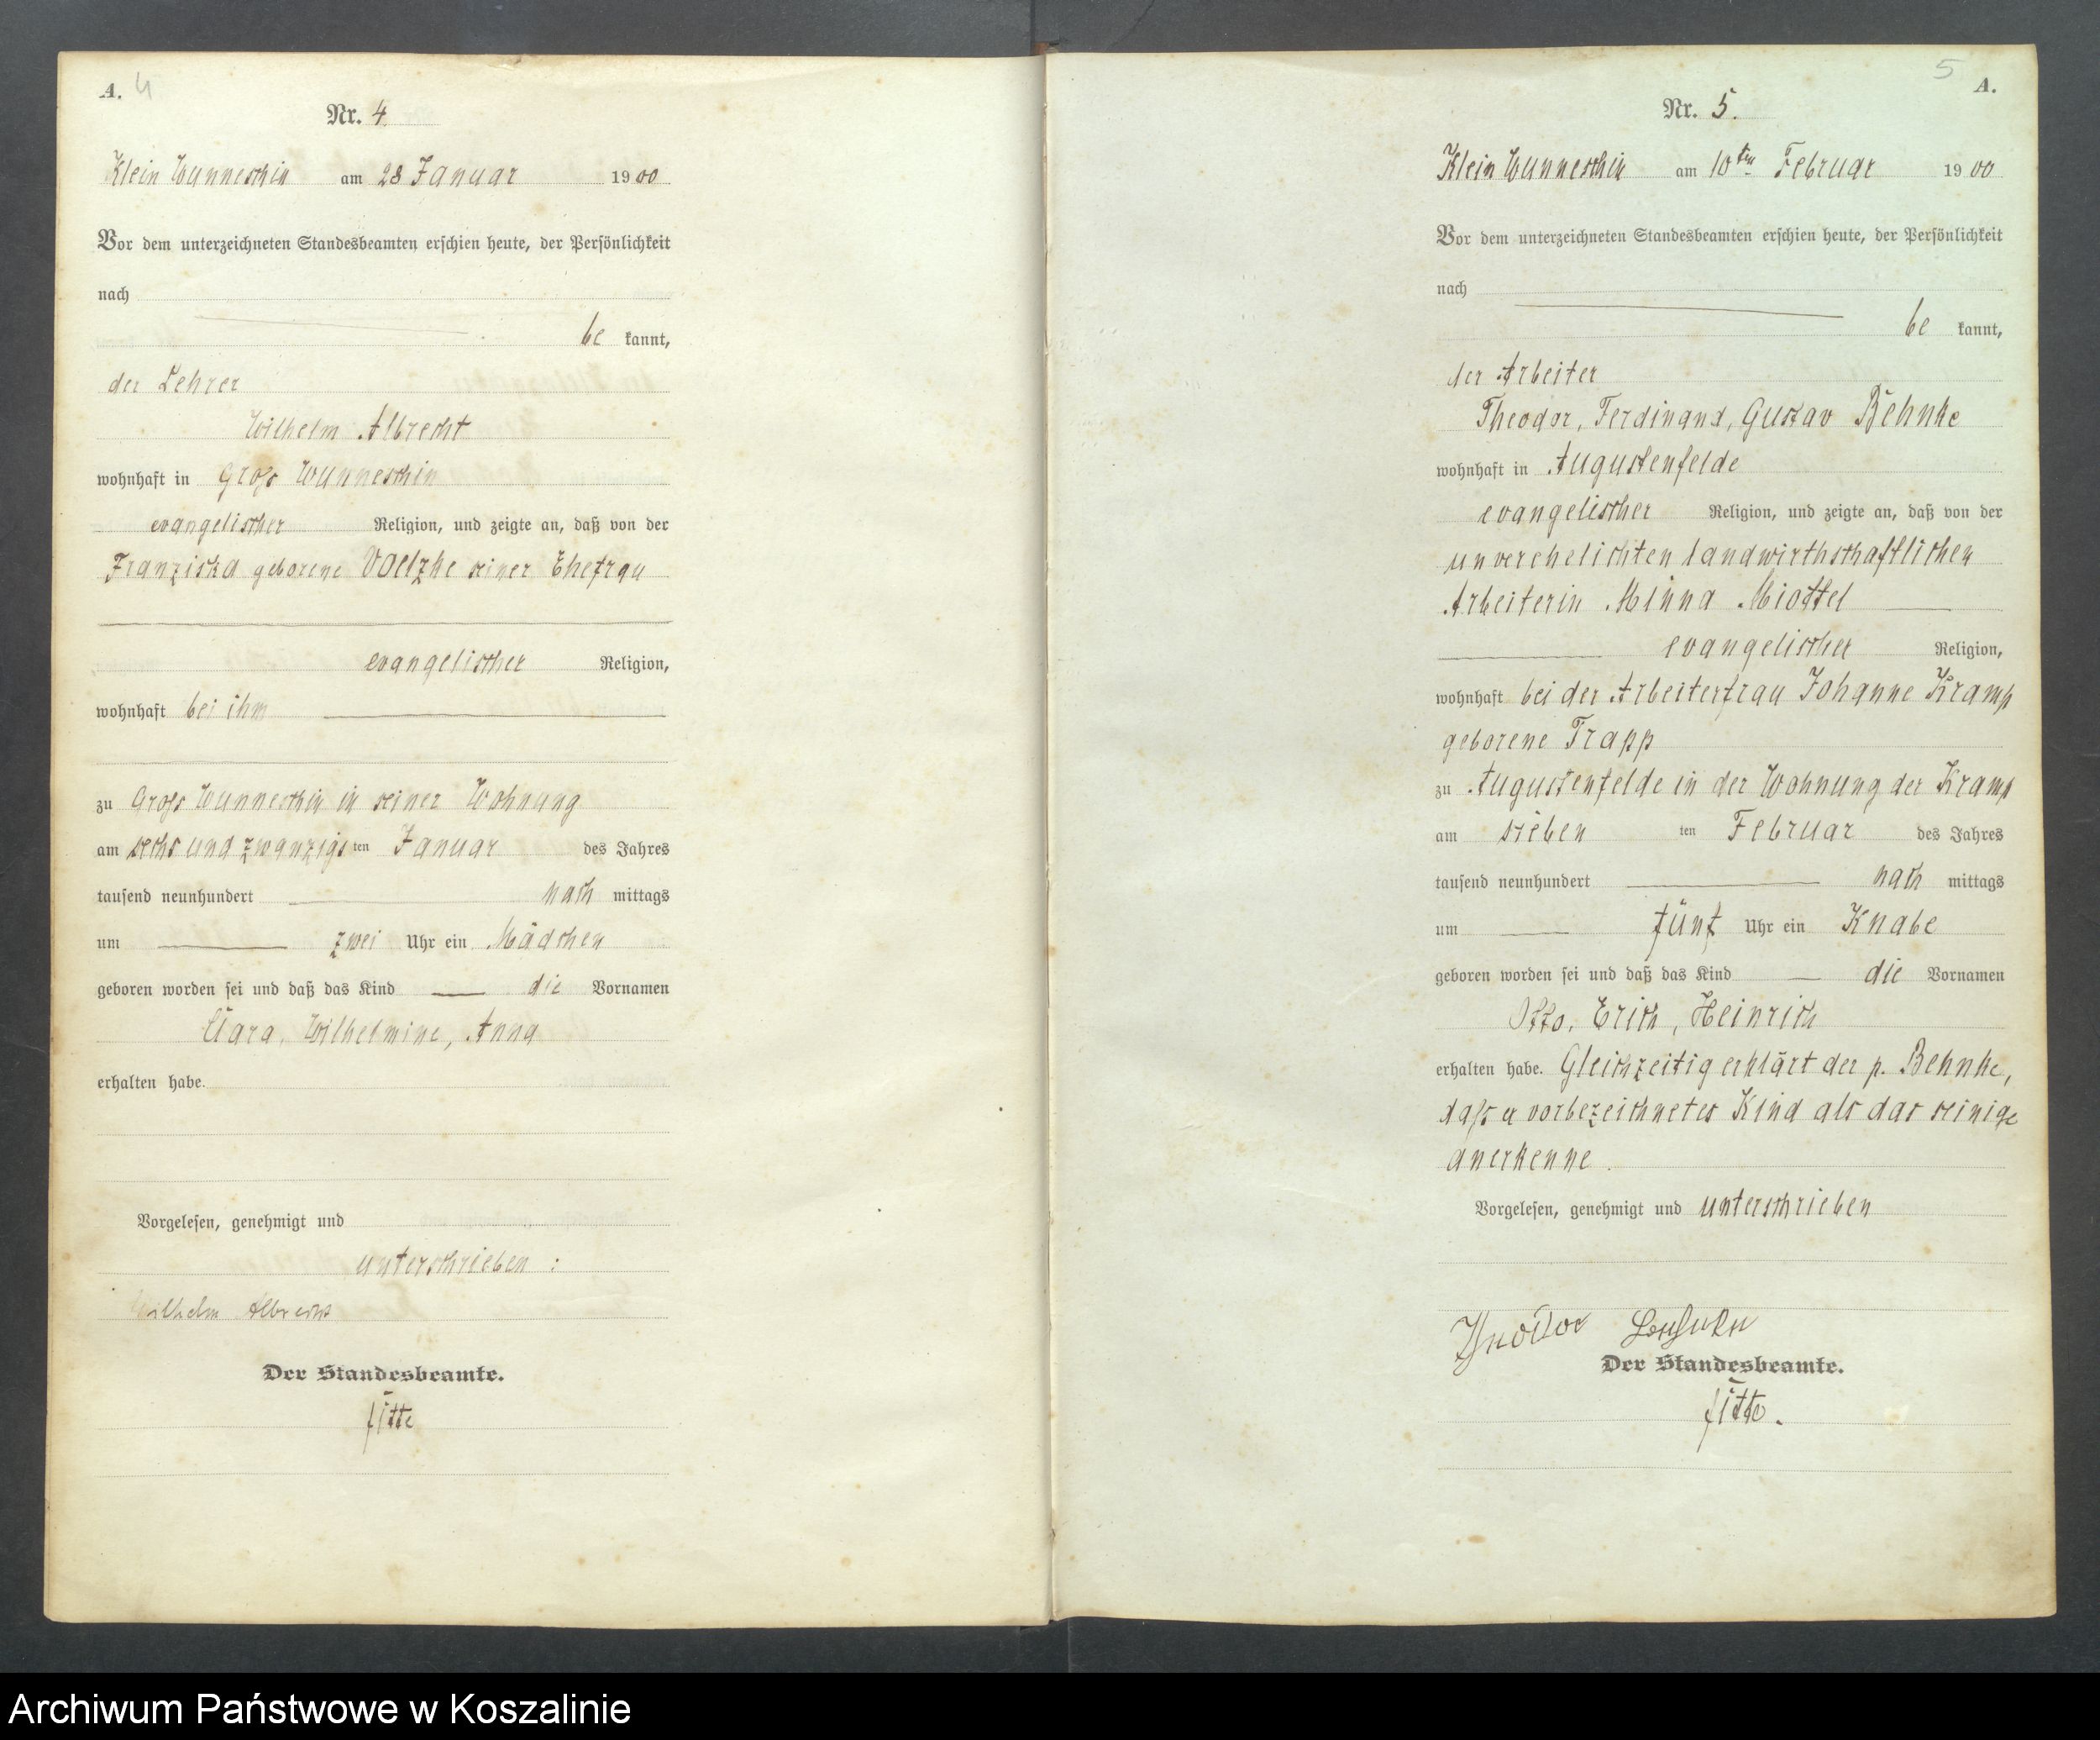 A. 4
Nr. 4.
Klein Wunneschin am 28 Januar 1900
Vor dem unterzeichneten Standesbeamten erschien heute, der Persönlichkeit
nach
be kannt,
der Lehrer
Wilhelm Albrecht
wohnhaft in Groß Wunneschin
evangelischer Religion, und zeigte an, daß von der
Franziska geborene Voelzke seiner Ehefrau
evangelischer Religion,
wohnhaft bei ihm
zu Groß Wunneschin in seiner Wohnung
am sechs und zwanzigs ten Januar des Jahres
tausend neunhundert nach mittags
um zwei Uhr ein Mädchen
geboren worden sei und daß das Kind die Vornamen
Clara, Wilhelmine, Anna
erhalten habe.
Vorgelesen, genehmigt und
unterschrieben :
Wilhelm Albrecht
Der Standesbeamte.
5 A.
Nr. 5.
Klein Wunneschin am 10ten Februar 1900
Vor dem unterzeichneten Standesbeamten erschien heute, der Persönlichkeit
nach
be kannt,
der Arbeiter
Theodor, Ferdinand, Gustav Behnke
wohnhaft in Augustenfelde
evangelischer Religion, und zeigte an, daß von der
unverehelichten landwirthschaftlichen
Arbeiterin Minna
evangelischer Religion,
wohnhaft bei der Arbeiterfrau Johanne Kramp
geborene Trapp
zu Augustenfelde in der Wohnung der Kramp
am sieben ten Februar des Jahres
tausend neunhundert nach mittags
um fünf Uhr ein Knabe
geboren worden sei und daß das Kind die Vornamen
Otto, Erich, Heinrich
erhalten habe. Gleichzeitig erklärt der p. Behnke,
daß er vorbezeichnetes Kind als das seinige
anerkenne.
Vorgelesen, genehmigt und unterschrieben
Der Standesbeamte.
Archiwum Państwowe w Koszalinie